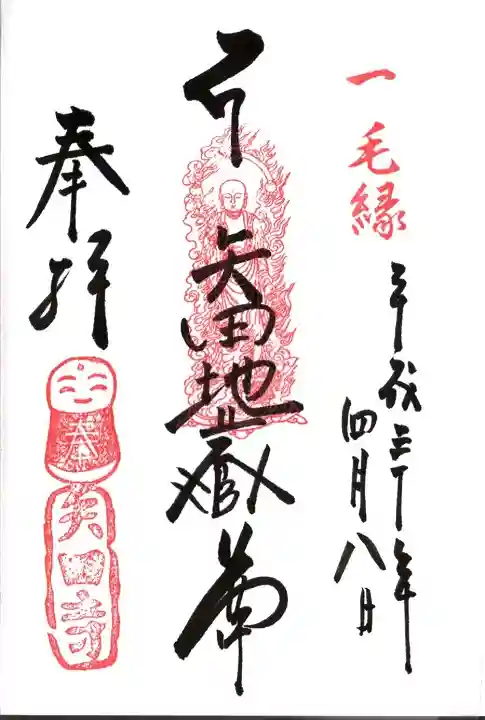 一毛縁
平成三十年
四月八日
矢田地蔵尊
奉拝
奉
矢田寺